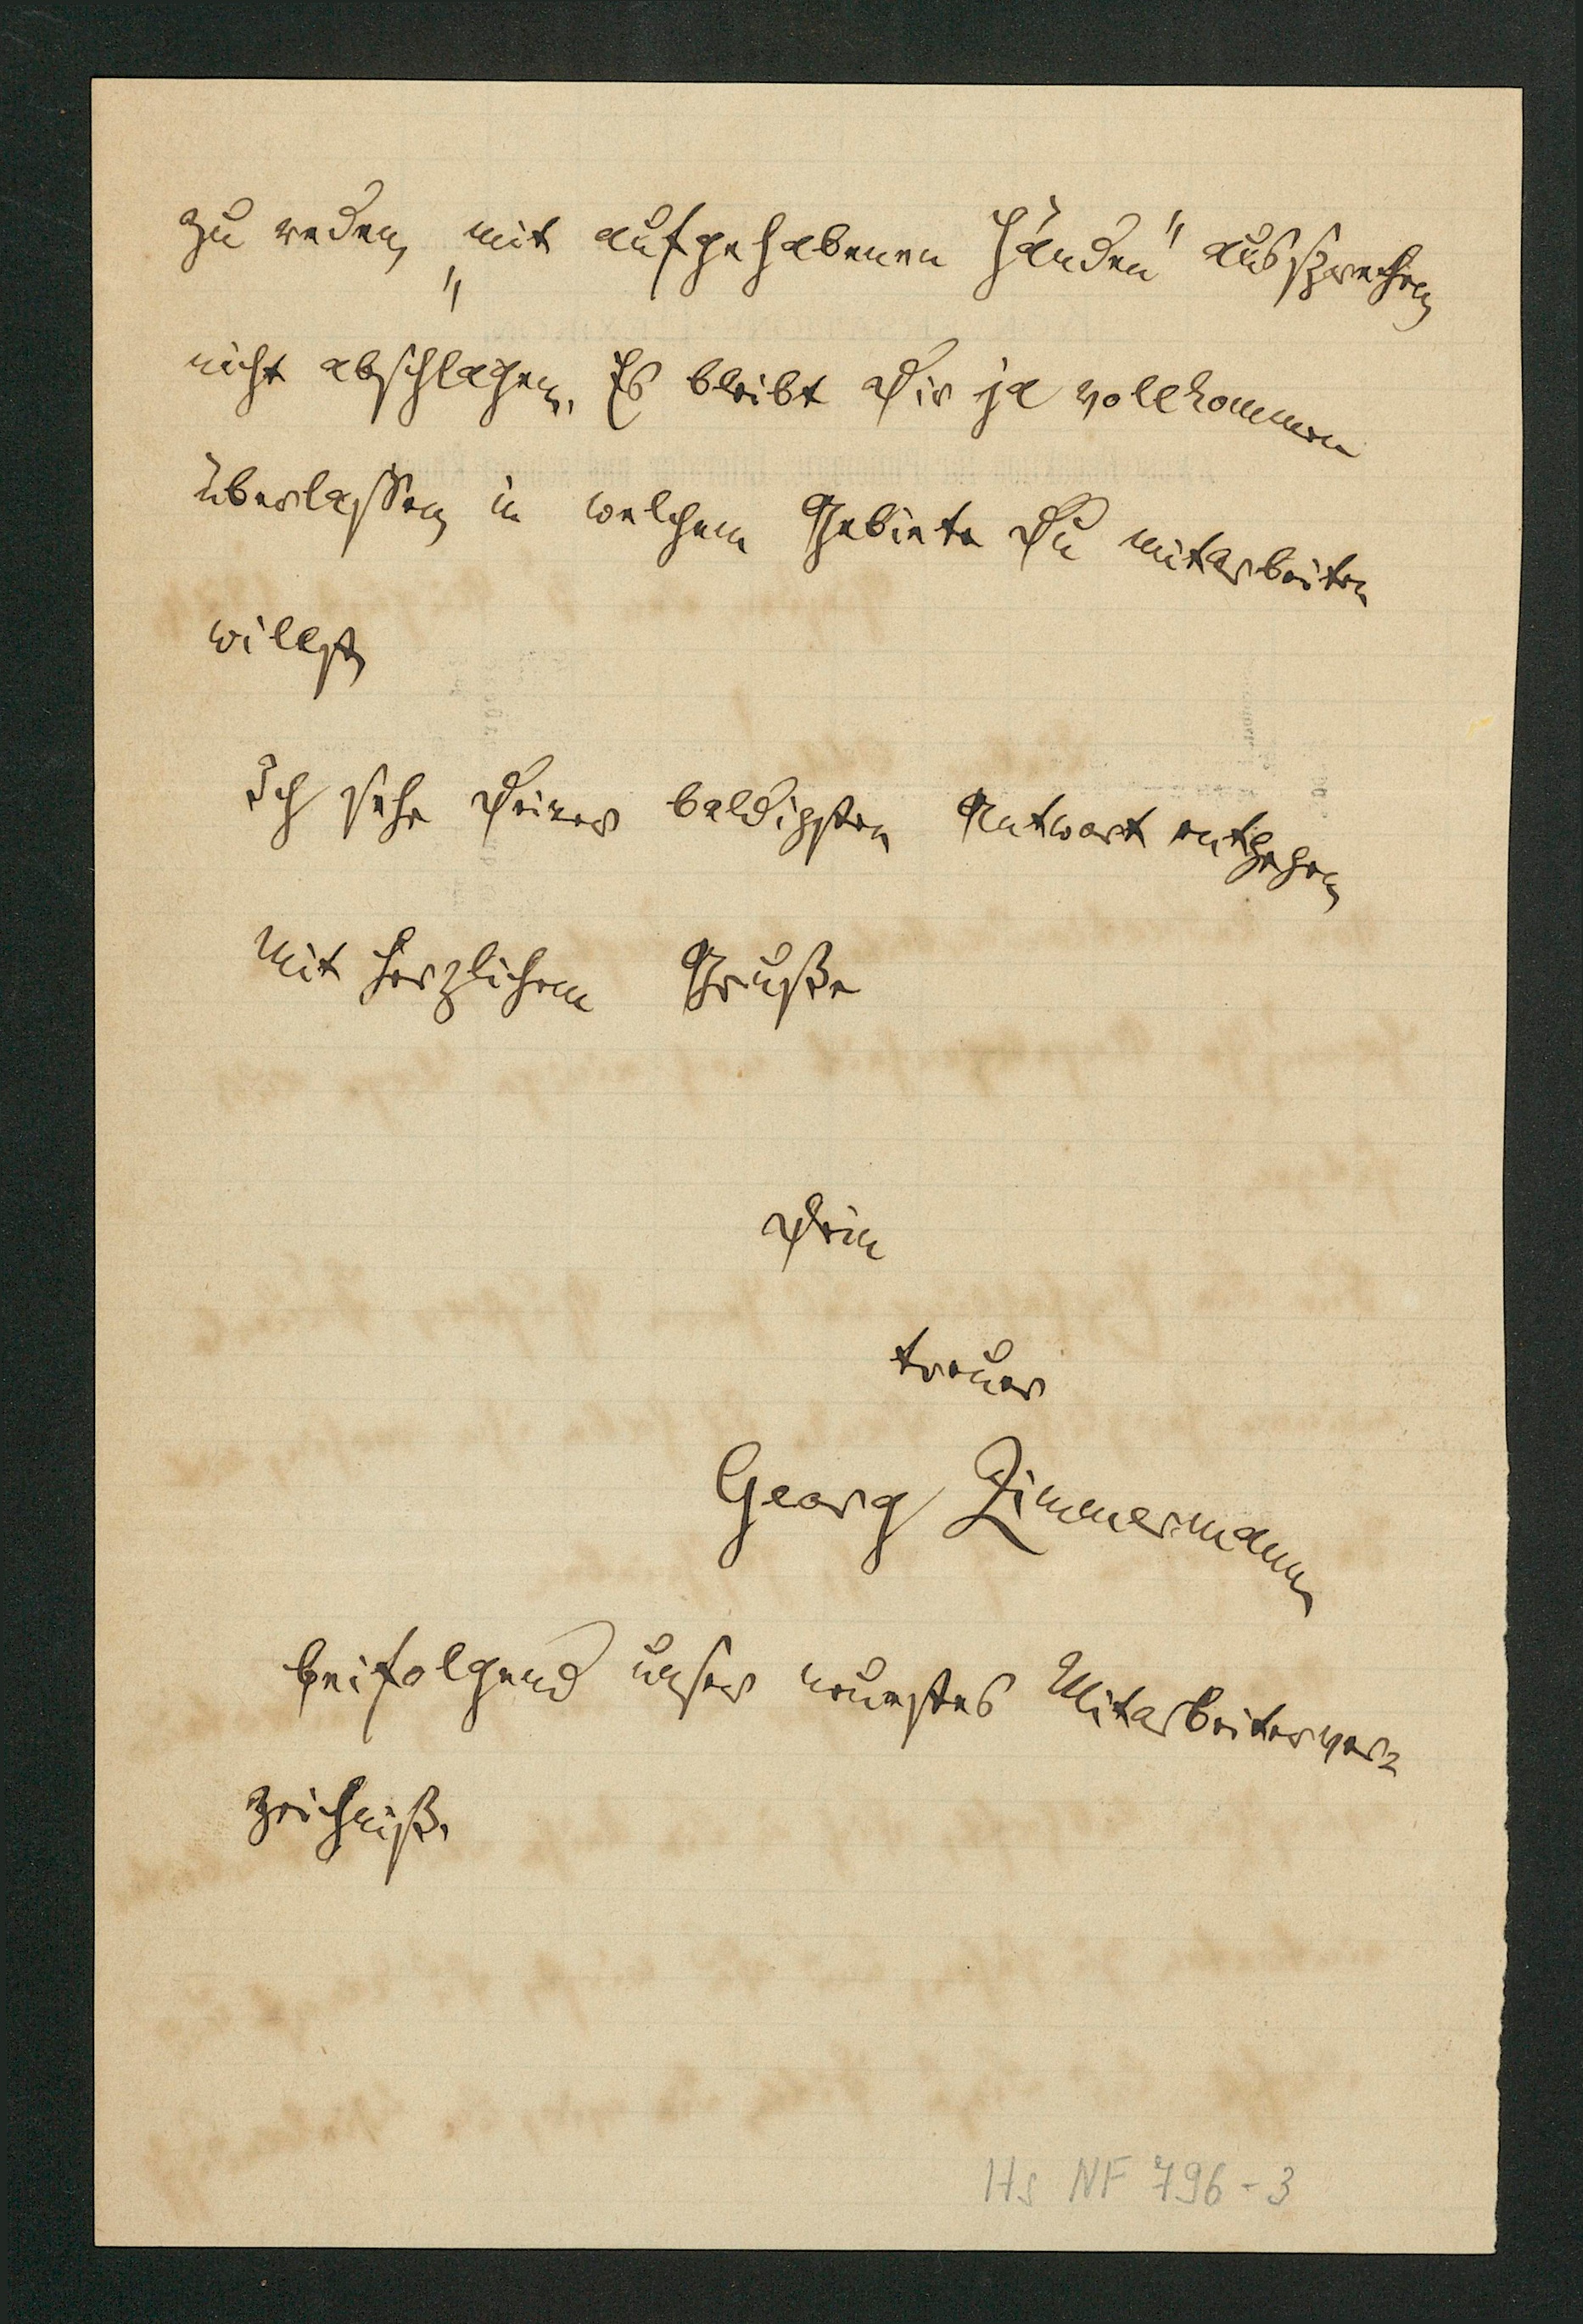 zu reden, „mit aufgehabenen Händen" aussprechen
nicht abschlagen. Es bleibt Dir ja vollkommen
überlassen in welchem Gebiete Du mitarbeiten
willst,
Ich sehe Deiner baldigsten Antwort entgegen
Mit herzlichem Gruße
Dein
treuer
Georg Zimmermann
beifolgend unser neuestes Mitarbeiterver=
zeichniß.
Hs NF 796-3